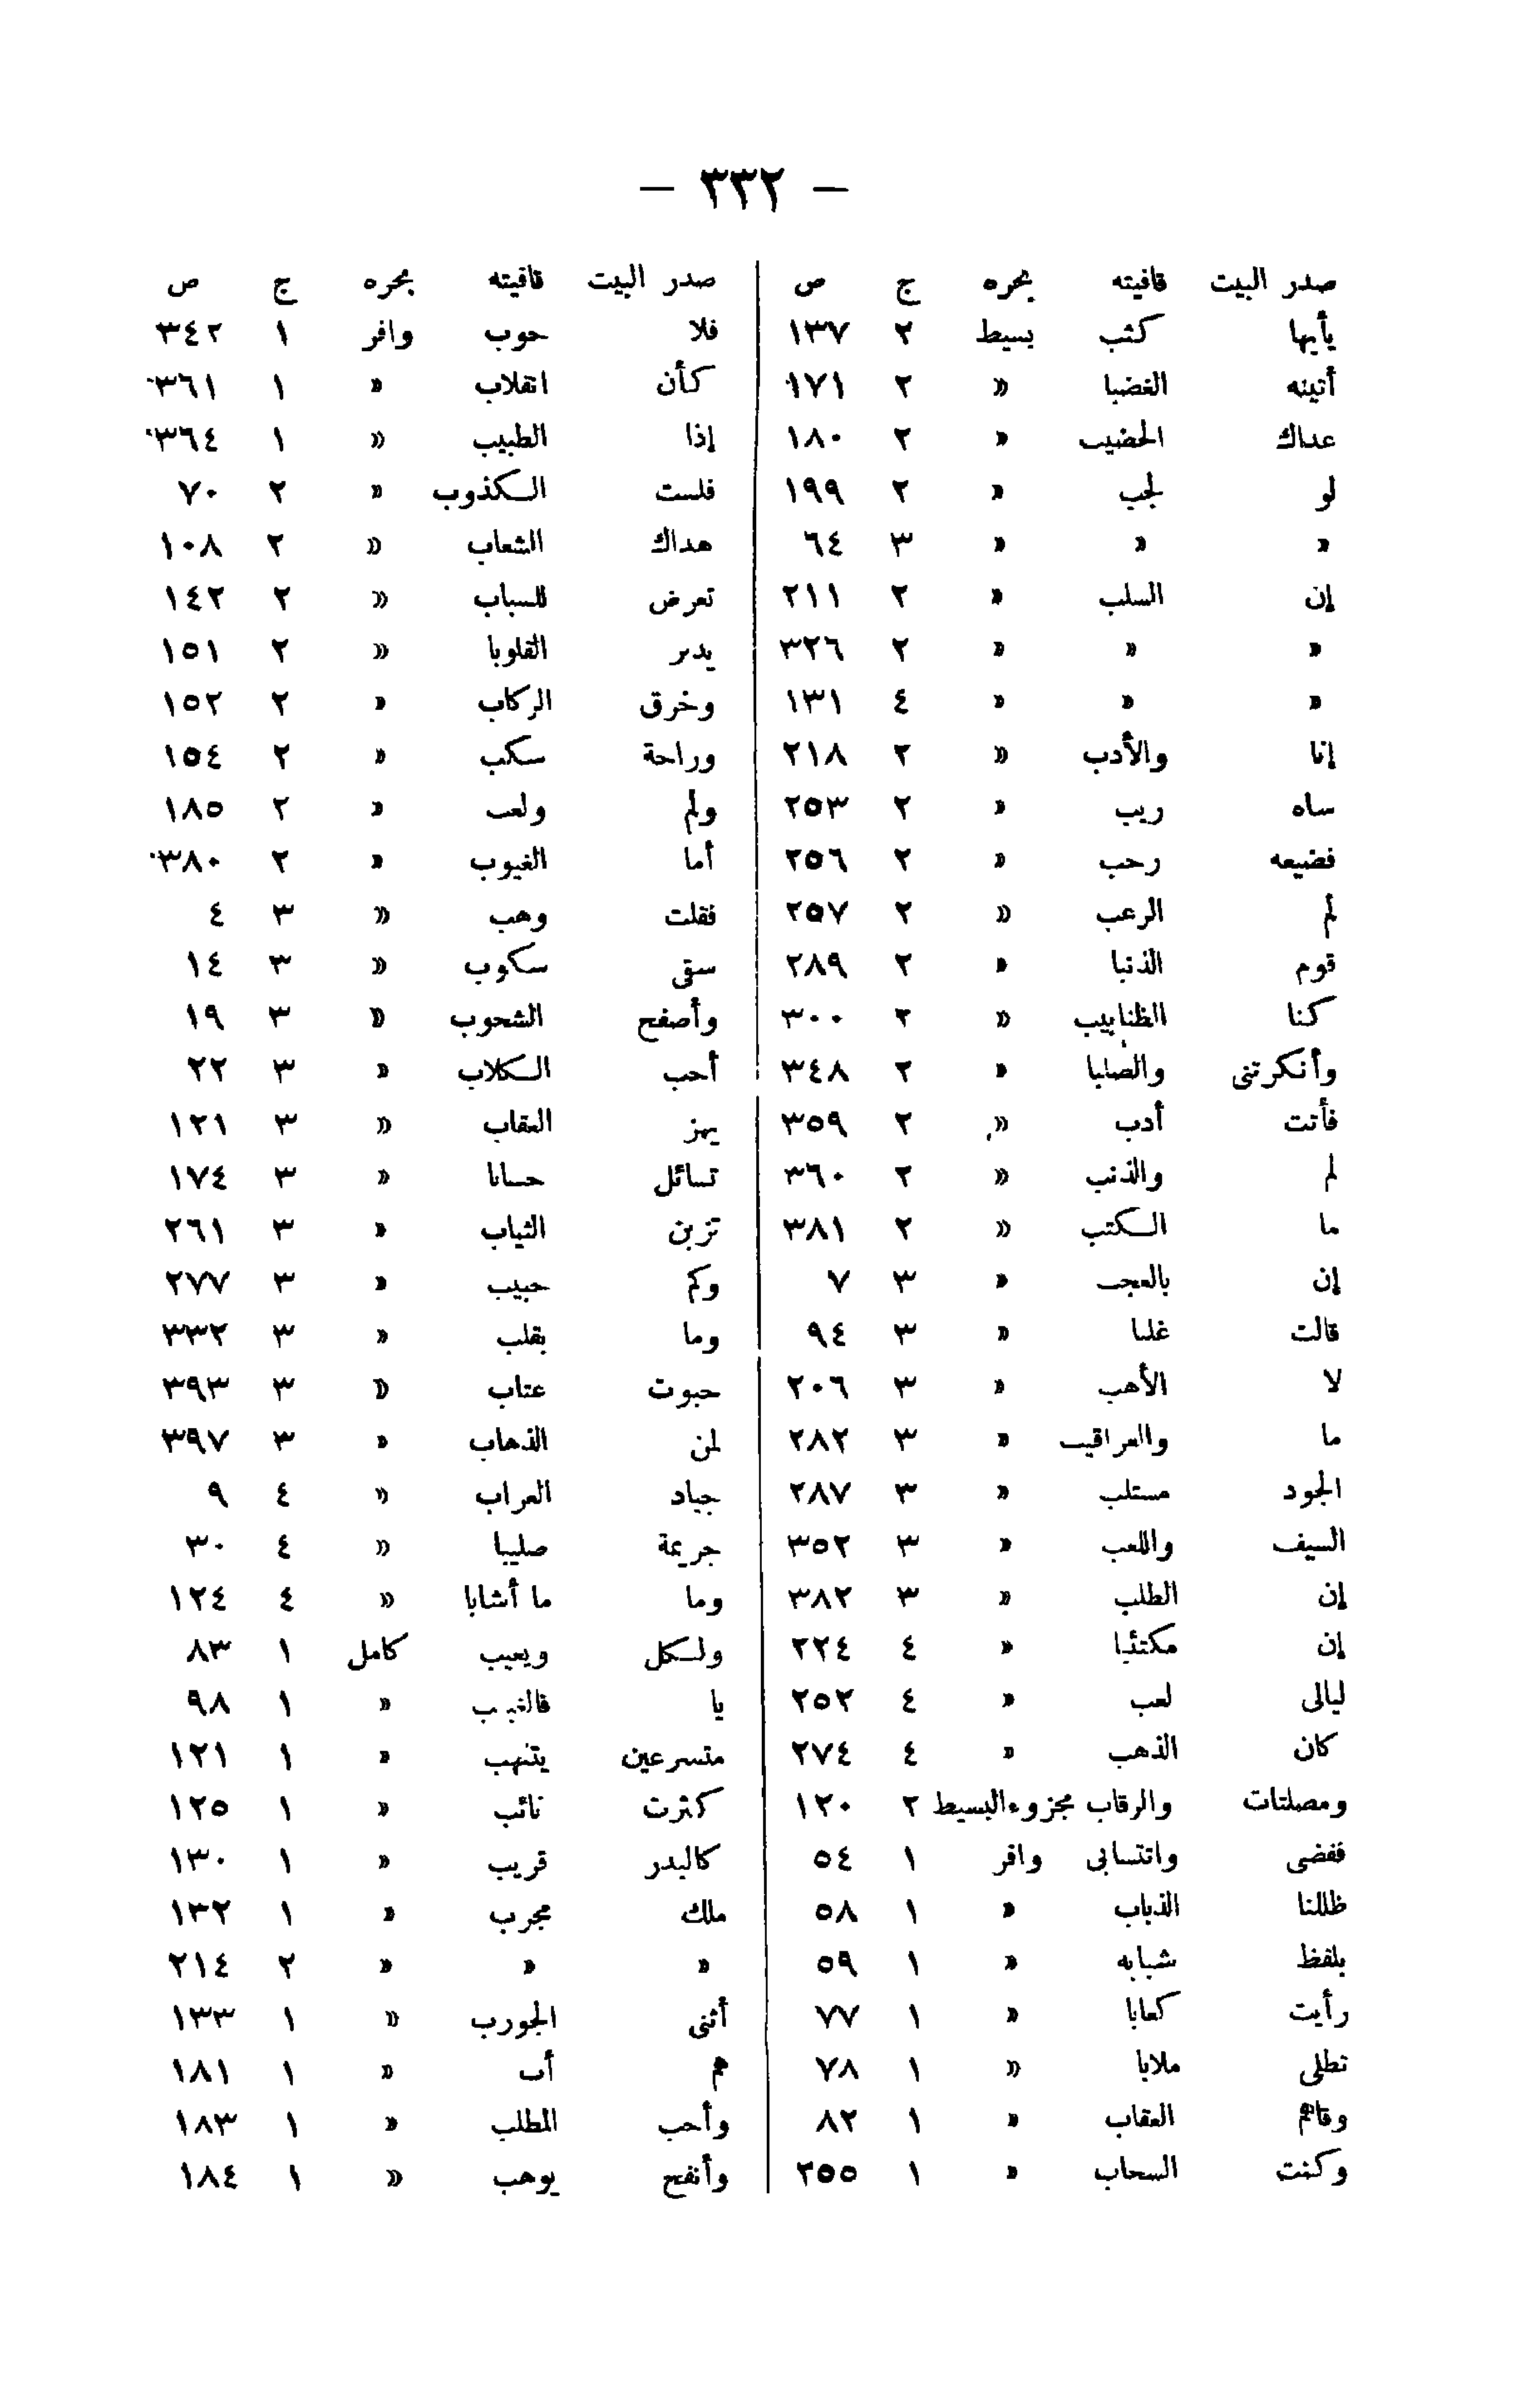 — ٣٣٢ —
صدر البيت قافيته بحره ج ص
يأيها كثب بسيط ٢ ١٣٧
أتيته الغضبا « ٢ ١٧١
عداك الخضيب « ٢ ١٨٠
لو لجب « ٢ ١٩٩
« « « ٣ ٦٤
إن السلب « ٢ ٢١١
« « « ٢ ٣٢٦
« « « ٤ ١٣١
إنا والأدب « ٢ ٢١٨
ساه ريب « ٢ ٢٥٣
فضيعه رحب « ٢ ٢٥٦
لم الرعب « ٢ ٢٥٧
قوم الذنبا « ٢ ٢٨٩
كنا الظنابيب « ٢ ٣٠٠
وأنكرتنى والصلبا « ٢ ٣٤٨
فأتت أدب « ٢ ٣٥٩
لم والذنب « ٢ ٣٦٠
ما الكتب « ٢ ٣٨١
إن بالعجب « ٣ ٧
قالت غلبا « ٣ ٩٤
لا الأهب « ٣ ٢٠٦
ما والعراقيب « ٣ ٢٨٢
الجود مستلب « ٣ ٢٨٧
السيف واللعب « ٣ ٣٥٢
إن الطلب « ٣ ٣٨٢
إن مكتئبا « ٤ ٢٢٤
ليالى لعب « ٤ ٢٥٢
كان الذهب « ٤ ٢٧٤
ومصلتات والرقاب مجزوءالبسيط ٢ ١٢٠
ففضى وانتسابى وافر ١ ٥٤
ظللنا الذباب « ١ ٥٨
بلفظ شبابه « ١ ٥٩
رأيت كعابا « ١ ٧٧
تطلى ملابا « ١ ٧٨
وقاتم العقاب « ١ ٨٢
وكنت السحاب « ١ ٢٥٥
صدر البيت قافيته بحره ج ص
فلا حوب وافر ١ ٣٤٢
كأن انقلاب « ١ ٣٦١
إذا الطبيب « ١ ٣٦٤
فلست الكذوب « ٢ ٧٠
هداك الشعاب « ٢ ١٠٨
تعرض للسباب « ٢ ١٤٢
يدير القلوبا « ٢ ١٥١
وخرق الركاب « ٢ ١٥٢
وراحة سكب « ٢ ١٥٤
ولم ولعب « ٢ ١٨٥
أما الغيوب « ٢ ٣٨٠
فقلت وهب « ٣ ٤
سقى سكوب « ٣ ١٤
وأصفح الشحوب « ٣ ١٩
أحب الكلاب « ٣ ٢٢
يهز العقاب « ٣ ١٢١
تسائل حسابا « ٣ ١٧٤
تزين الثياب « ٣ ٢٦١
وكم حبيب « ٣ ٢٧٧
وما بقلب « ٣ ٣٣٢
حبوت عتاب « ٣ ٣٩٣
لمن الذهاب « ٣ ٣٩٧
جياد العراب « ٤ ٩
جريمة صليبا « ٤ ٣٠
وما ما أشابا « ٤ ١٢٤
ولكل ويعيب كامل ١ ٨٣
يا « ١ ٩٨
متسرعين يتنهب « ١ ١٢١
كثرت نائب « ١ ١٢٥
كالبدر قريب « ١ ١٣٠
ملك مجرب « ١ ١٣٢
« « « ٢ ٢١٤
أثنى الجورب « ١ ١٣٣
هم أب « ١ ١٨١
وأحب المطلب « ١ ١٨٣
وأنفح يوهب « ١ ١٨٤